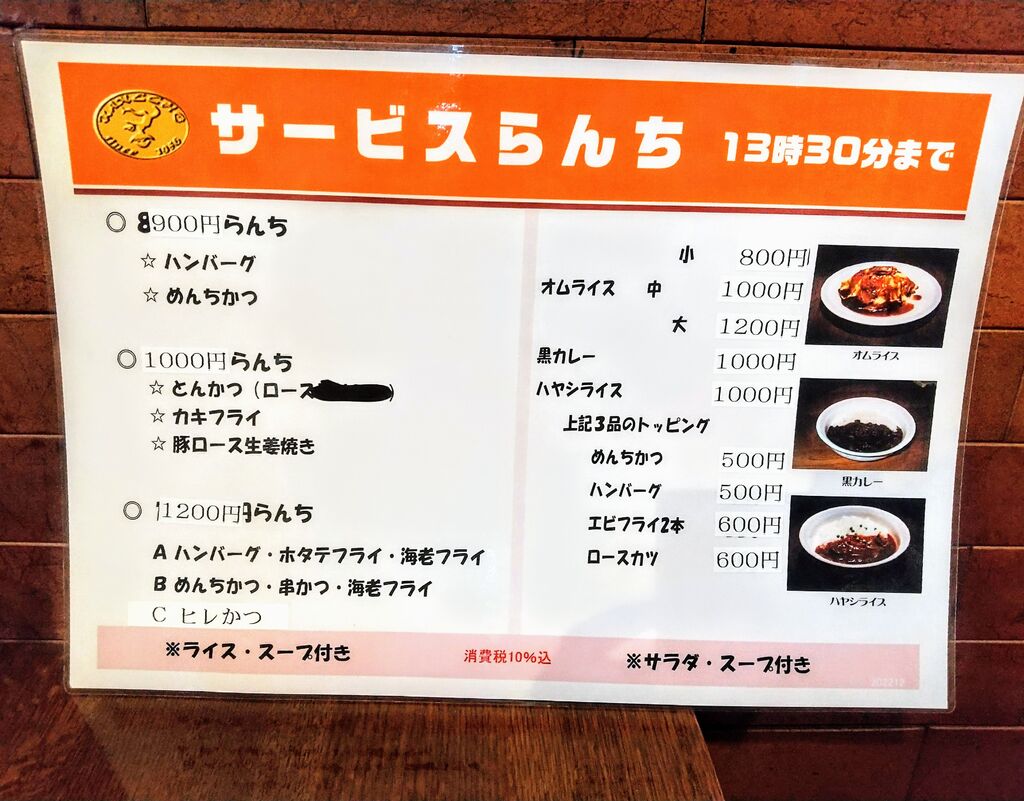 サービスらんち 13時30分まで
◎ 900円らんち
☆ ハンバーグ
☆ めんちかつ
◎ 1000円らんち
☆ とんかつ（ロース ）
☆ カキフライ
☆ 豚ロース生姜焼き
◎ 1200円らんち
A ハンバーグ・ホタテフライ・海老フライ
B めんちかつ・串かつ・海老フライ
C ヒレかつ
※ライス・スープ付き
小 800円
オムライス 中 1000円
大 1200円
黒カレー 1000円
ハヤシライス 1000円
上記3品のトッピング
めんちかつ 500円
ハンバーグ 500円
エビフライ2本 600円
ロースカツ 600円
オムライス
黒カレー
ハヤシライス
消費税10%込
※サラダ・スープ付き
202212